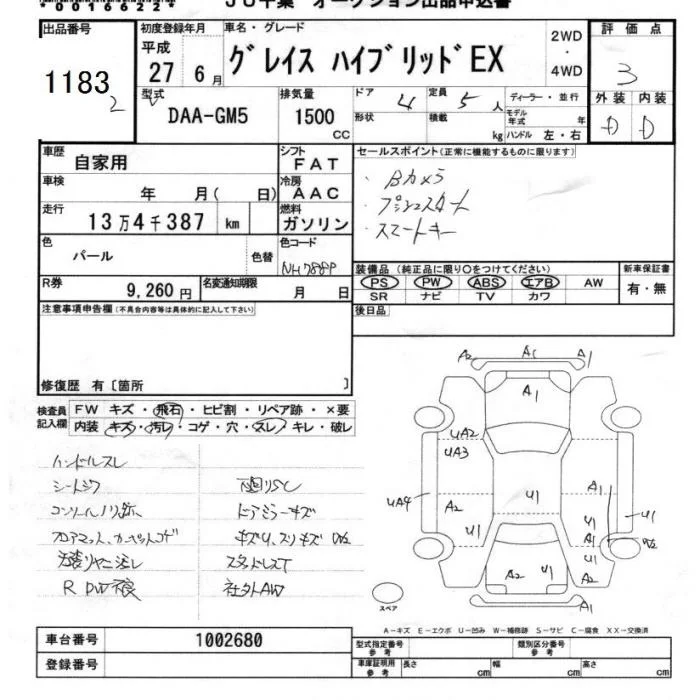 *00166224*
JU千葉 オークション出品申込書
出品番号
1183
2
初度登録年月
平成
27 6月
車名・グレード
グレイス ハイブリッドEX
2WD
・
4WD
評価点
3
外装 内装
D D
型式
DAA-GM5
排気量
1500
CC
ドア 4
形状
定員 5 人
積載 kg
ディーラー・並行
モデル年式 年
ハンドル 左・右
車歴
自家用
シフト
FAT
車検
年 月( 日)
冷房
AAC
走行
13万4千387 km
燃料
ガソリン
色
パール
色替
色コード
NH788P
R券
9,260円
名変通知期限
月 日
セールスポイント(正常に機能するものに限ります)
・Bカメラ
・プッシュスタート
・スマートキー
装備品 (純正品に限り○をつけてください)
PS PW ABS エアB AW
SR ナビ TV カワ
新車保証書
有・無
後日品
注意事項申告欄(不具合内容等は具体的に記入して下さい)
修復歴 有〔箇所 〕
検査員
記入欄
FW キズ・飛石・ヒビ割・リペア跡・×要
内装 キズ・汚レ・コゲ・穴・スレ・キレ・破レ
ハンドルスレ
シートシワ
コンソールノリ跡
フロアマット、カーペットコゲ
R PW不良
ドアミラーキズ
キズリ、スリキズ
スタッドレスT
社外AW
A2 A1 A1
A1
UA2
UA3
UA4
A2
U1
U1
A1
U1
A1
U1
U1
A2
A2 U1
A1
スペア
A-キズ E-エクボ U-凹み W-補修跡 S-サビ C-腐食 XX-交換済
車台番号 1002680
登録番号
型式指定番号
参考
類別区分番号
参考
車庫証明用
参考
長さ cm 幅 cm 高さ cm